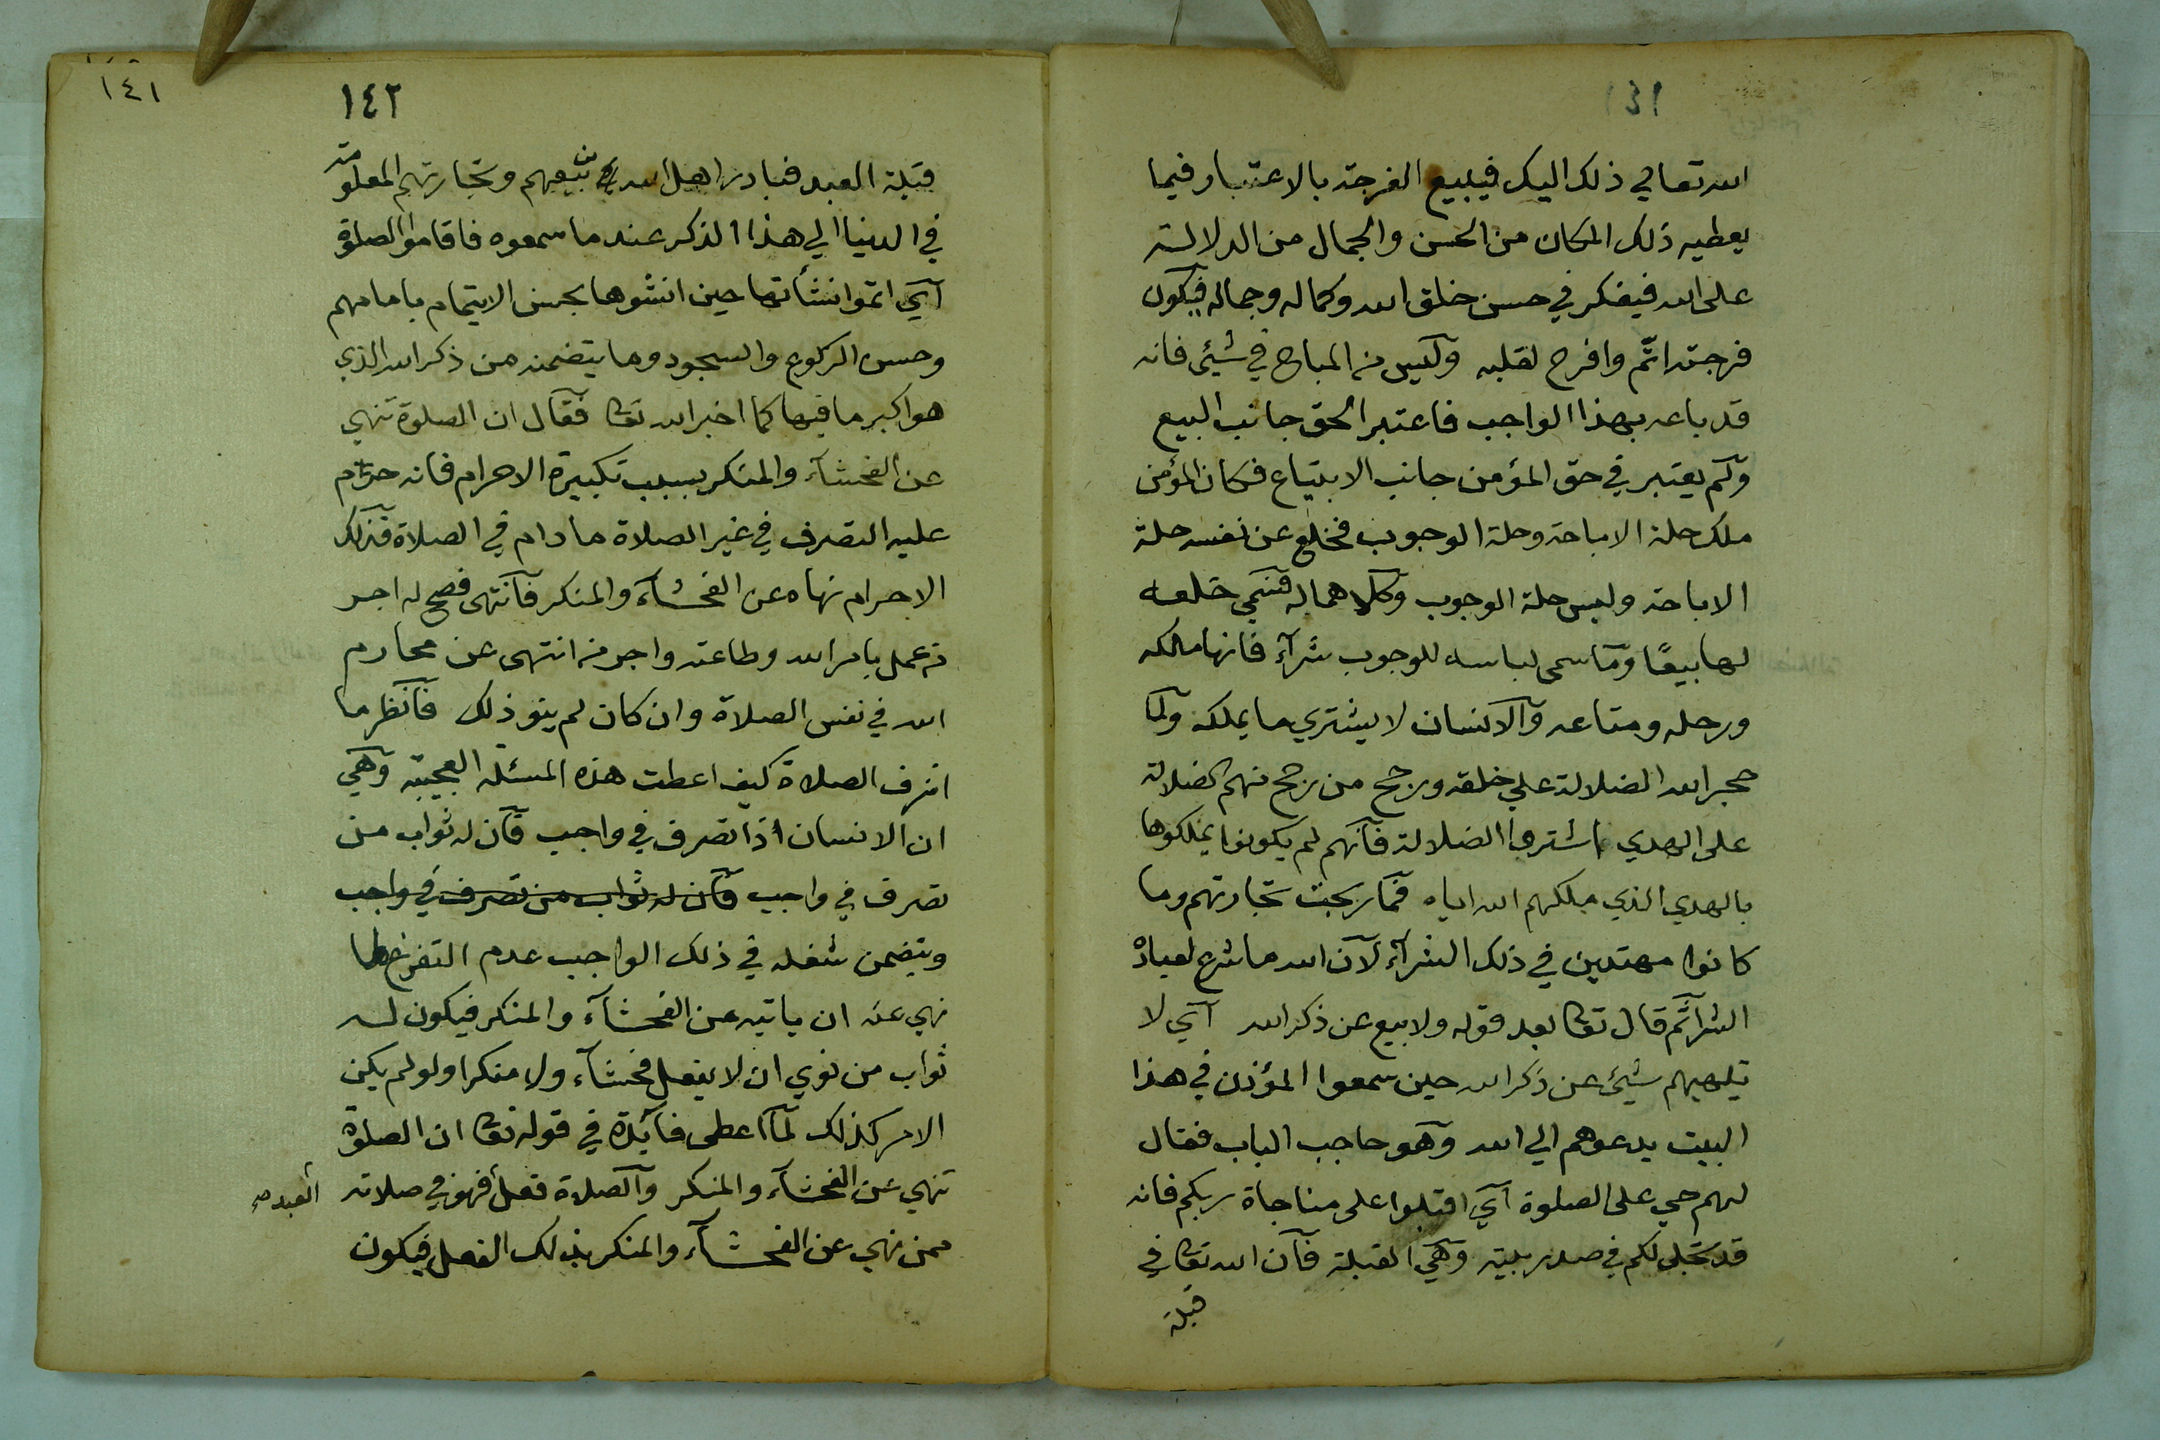 ١٤١
الله تعالي ذلك اليك فيبيع الفرجة بالاعتبار فيما
يعطيه ذلك المكان من الحسن والجمال من الدلالة
على الله فيفكر في حسن خلق الله وكماله وجماله فيكون
فرجته اتم وافرح لقلبه وليس من المباح في شيئ فانه
قد باعه بهذا الواجب فاعتبر الحق جانب البيع
ولم يعتبر في حق المؤمن جانب الابتياع فكان المؤمن
ملك حلة الاباحة وحلة الوجوب فخلع عن نفسه حلة
الاباحة ولبس حلة الوجوب وكلاهما له فسمي خلعه
لها بيعًا وما سمى لباسه للوجوب شرآء فانها ملكه
ورحله ومتاعه والانسان لا يشتري ما يملكه ولما
حجر الله الضلالة علي خلقه ورجح من رجح منهم الضلالة
على الهدي اشتروا الضلالة فانهم لم يكونوا يملكوها
بالهدي الذي ملكهم الله اياه فما ربحت تجارتهم وما
كانوا مهتدين في ذلك الشرآء لان الله ما شرع لعباده
الشرا ثم قال تعا بعد قوله ولا بيع عن ذكر الله اي لا
تلهيهم شيئ عن ذكر الله حين سمعوا المؤذن في هذا
البيت يدعوهم الي الله وهو حاجب الباب فقال
لهم حي على الصلوة اي اقبلوا على مناجاة ربكم فانه
قد تجلى لكم في صدر بيته وهي القبلة فان الله تعا في
قبلة
١٤١
١٤٢
قبلة العبد فبادر اهل الله من بيعهم وتجارتهم المعلومة
في الدنيا الي هذا الذكر عند ما سمعوه فاقاموا الصلوة
اي اتموا نشأتها حين انشوها بحسن الايتمام بامامهم
وحسن الركوع والسجود وما يتضمنه من ذكر الله الذي
هو اكبر ما فيها كما اخبر الله تعا فقال ان الصلوة تنهي
عن الفحشآء والمنكر بسبب تكبيرة الاحرام فانه حرام
عليه التصرف في غير الصلاة ما دام في الصلاة فذلك
الاحرام نهاه عن الفحشآء والمنكر فانتهى فصح له اجر
من عمل بامر الله وطاعته واجر من انتهى عن محارم
الله في نفس الصلاة وان كان لم ينو ذلك فانظر ما
اشرف الصلاة كيف اعطت هذه المسئلة العجيبة وهي
ان الانسان اذا تصرف في واجب فان له ثواب من
تصرف في واجب فان له ثواب من تصرف في واجب
ويتضمن شغله في ذلك الواجب عدم التفرغ لما
نهي عنه ان ياتيه من الفحشآء والمنكر فيكون له
ثواب من نوي ان لا يفعل فحشآء ولا منكرا ولو لم يكن
الامر كذلك لما اعطى فآئدة في قوله تعا ان الصلوة
تنهي عن الفحشآء والمنكر والصلاة فعل فهو في صلاته
العبد صح
ممن نهي عن الفحشآء والمنكر بذلك الفعل فيكون